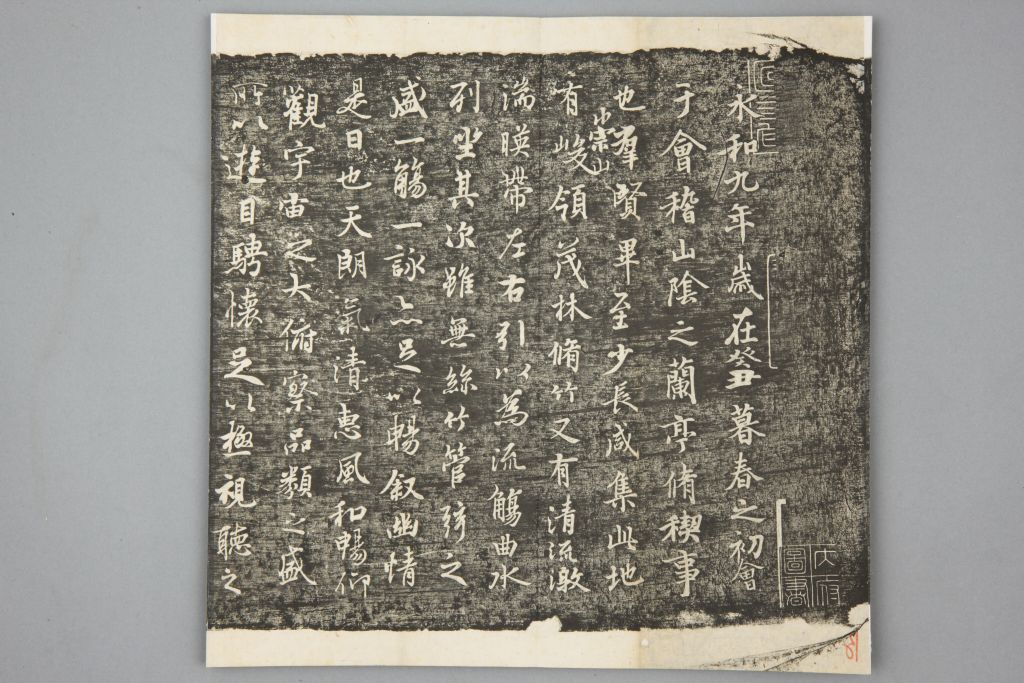 永和九年歲在癸丑暮春之初會
于會稽山陰之蘭亭脩禊事
也羣賢畢至少長咸集此地
有崇山峻領茂林脩竹又有清流激
湍暎帶左右引以為流觴曲水
列坐其次雖無絲竹管弦之
盛一觴一詠亦足以暢叙幽情
是日也天朗氣清惠風和暢仰
觀宇宙之大俯察品類之盛
所以遊目騁懷足以極視聽之